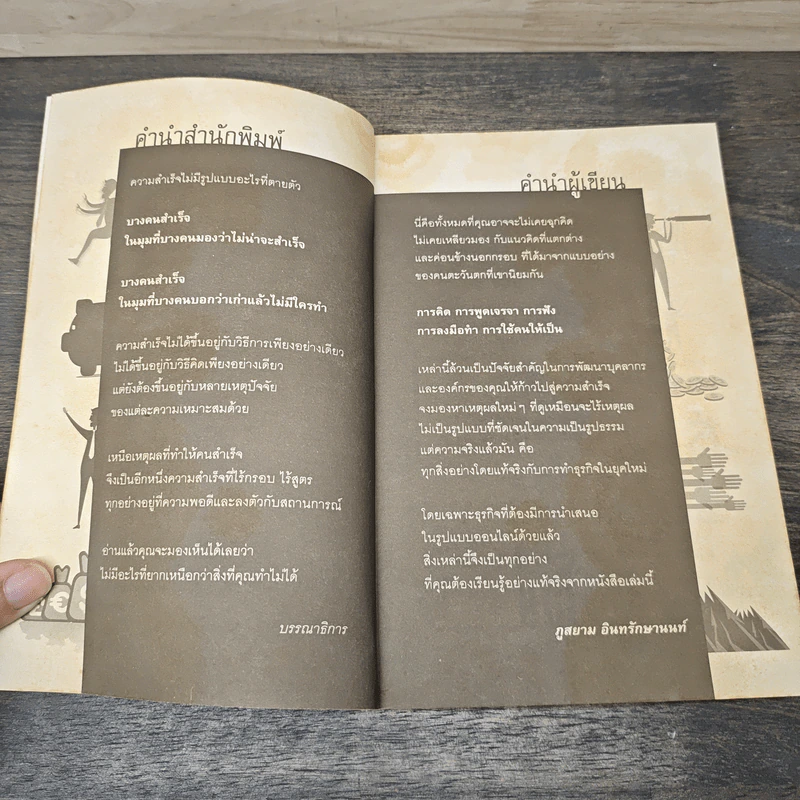 คำนำสำนักพิมพ์
ความสำเร็จไม่มีรูปแบบอะไรที่ตายตัว
บางคนสำเร็จ
ในมุมที่บางคนมองว่าไม่น่าจะสำเร็จ
บางคนสำเร็จ
ในมุมที่บางคนบอกว่าเก่าแล้วไม่มีใครทำ
ความสำเร็จไม่ได้ขึ้นอยู่กับวิธีการเพียงอย่างเดียว
ไม่ได้ขึ้นอยู่กับวิธีคิดเพียงอย่างเดียว
แต่ยังต้องขึ้นอยู่กับหลายเหตุปัจจัย
ของแต่ละความเหมาะสมด้วย
เหนือเหตุผลที่ทำให้คนสำเร็จ
จึงเป็นอีกหนึ่งความสำเร็จที่ไร้กรอบ ไร้สูตร
ทุกอย่างอยู่ที่ความพอดีและลงตัวกับสถานการณ์
อ่านแล้วคุณจะมองเห็นได้เลยว่า
ไม่มีอะไรที่ยากเหนือกว่าสิ่งที่คุณทำไม่ได้
บรรณาธิการ
คำนำผู้เขียน
นี่คือทั้งหมดที่คุณอาจจะไม่เคยฉุกคิด
ไม่เคยเหลียวมอง กับแนวคิดที่แตกต่าง
และค่อนข้างนอกกรอบ ที่ได้มาจากแบบอย่าง
ของคนตะวันตกที่เขานิยมกัน
การคิด การพูดเจรจา การฟัง
การลงมือทำ การใช้คนให้เป็น
เหล่านี้ล้วนเป็นปัจจัยสำคัญในการพัฒนาบุคลากร
และองค์กรของคุณให้ก้าวไปสู่ความสำเร็จ
จงมองหาเหตุผลใหม่ ๆ ที่ดูเหมือนจะไร้เหตุผล
ไม่เป็นรูปแบบที่ชัดเจนในความเป็นรูปธรรม
แต่ความจริงแล้วมัน คือ
ทุกสิ่งอย่างโดยแท้จริงกับการทำธุรกิจในยุคใหม่
โดยเฉพาะธุรกิจที่ต้องมีการนำเสนอ
ในรูปแบบออนไลน์ด้วยแล้ว
สิ่งเหล่านี้จึงเป็นทุกอย่าง
ที่คุณต้องเรียนรู้อย่างแท้จริงจากหนังสือเล่มนี้
ภูสยาม อินทรักษานนท์